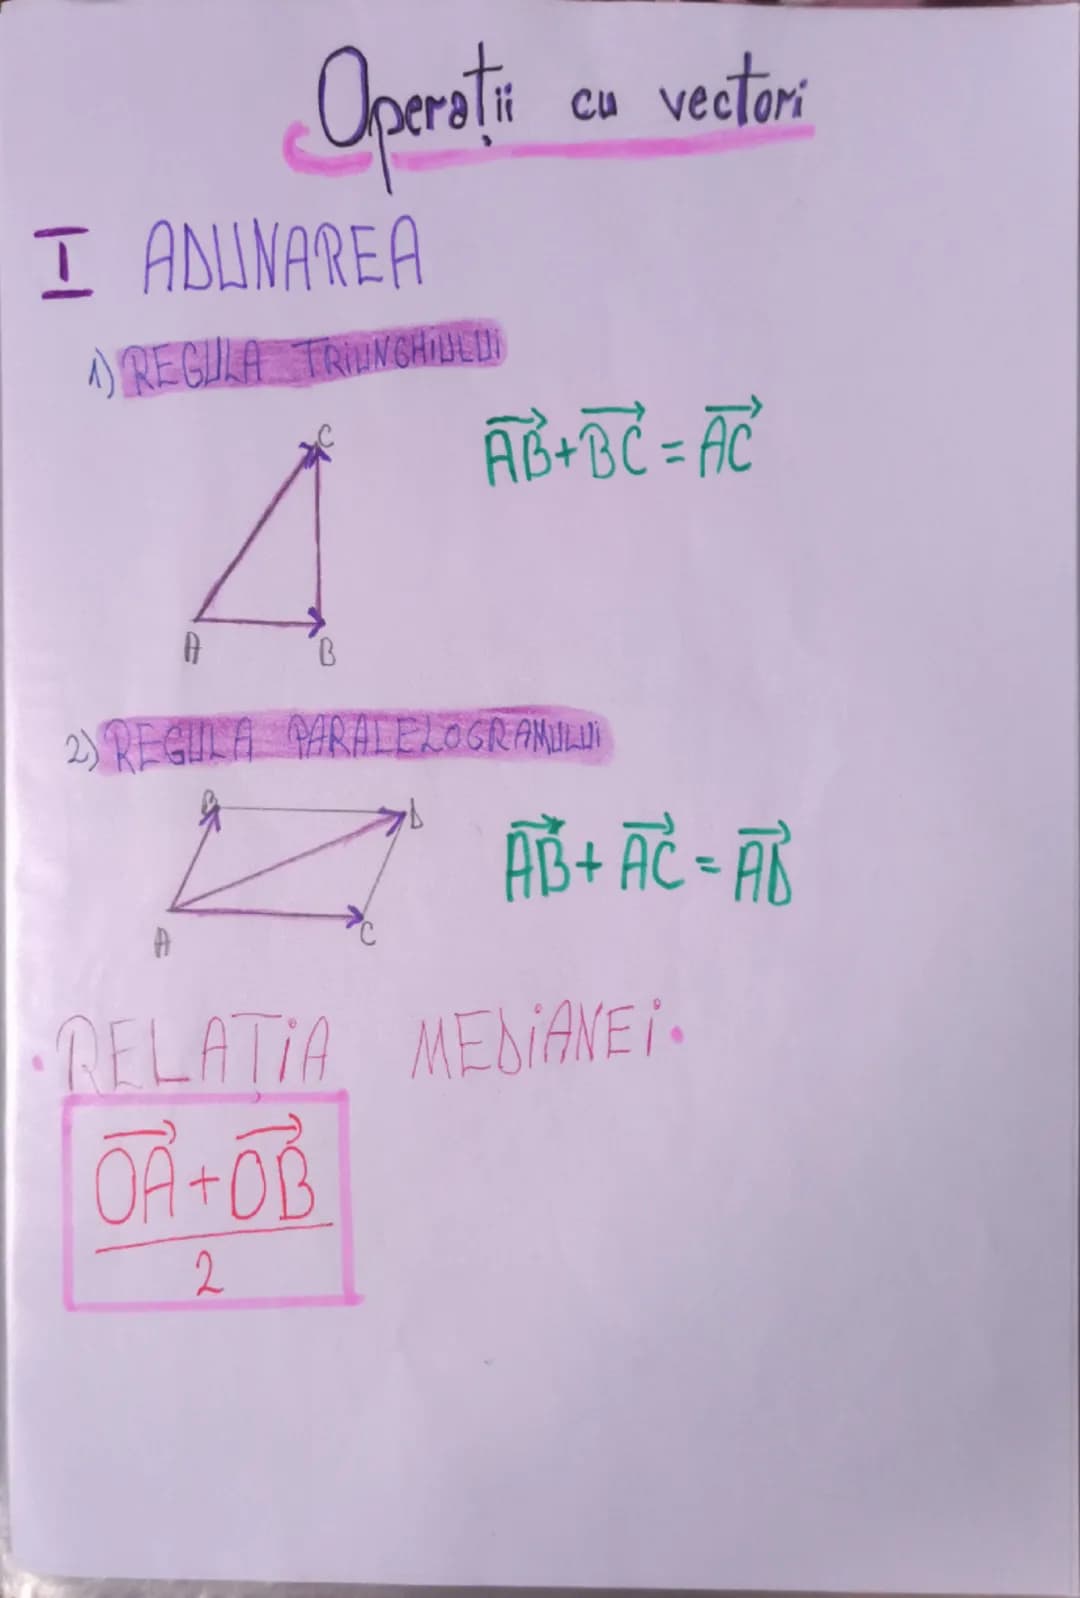 Operații cu vectori
I ADUNAREA
1) REGULA TRIUNGHIULUI
C
AB+BC = AC
A
B
2) REGULA PARALELOGRAMULUI
B
D
AB + AC = AD
A
C
• RELAȚIA MEDIANEI •
OA+OB
2